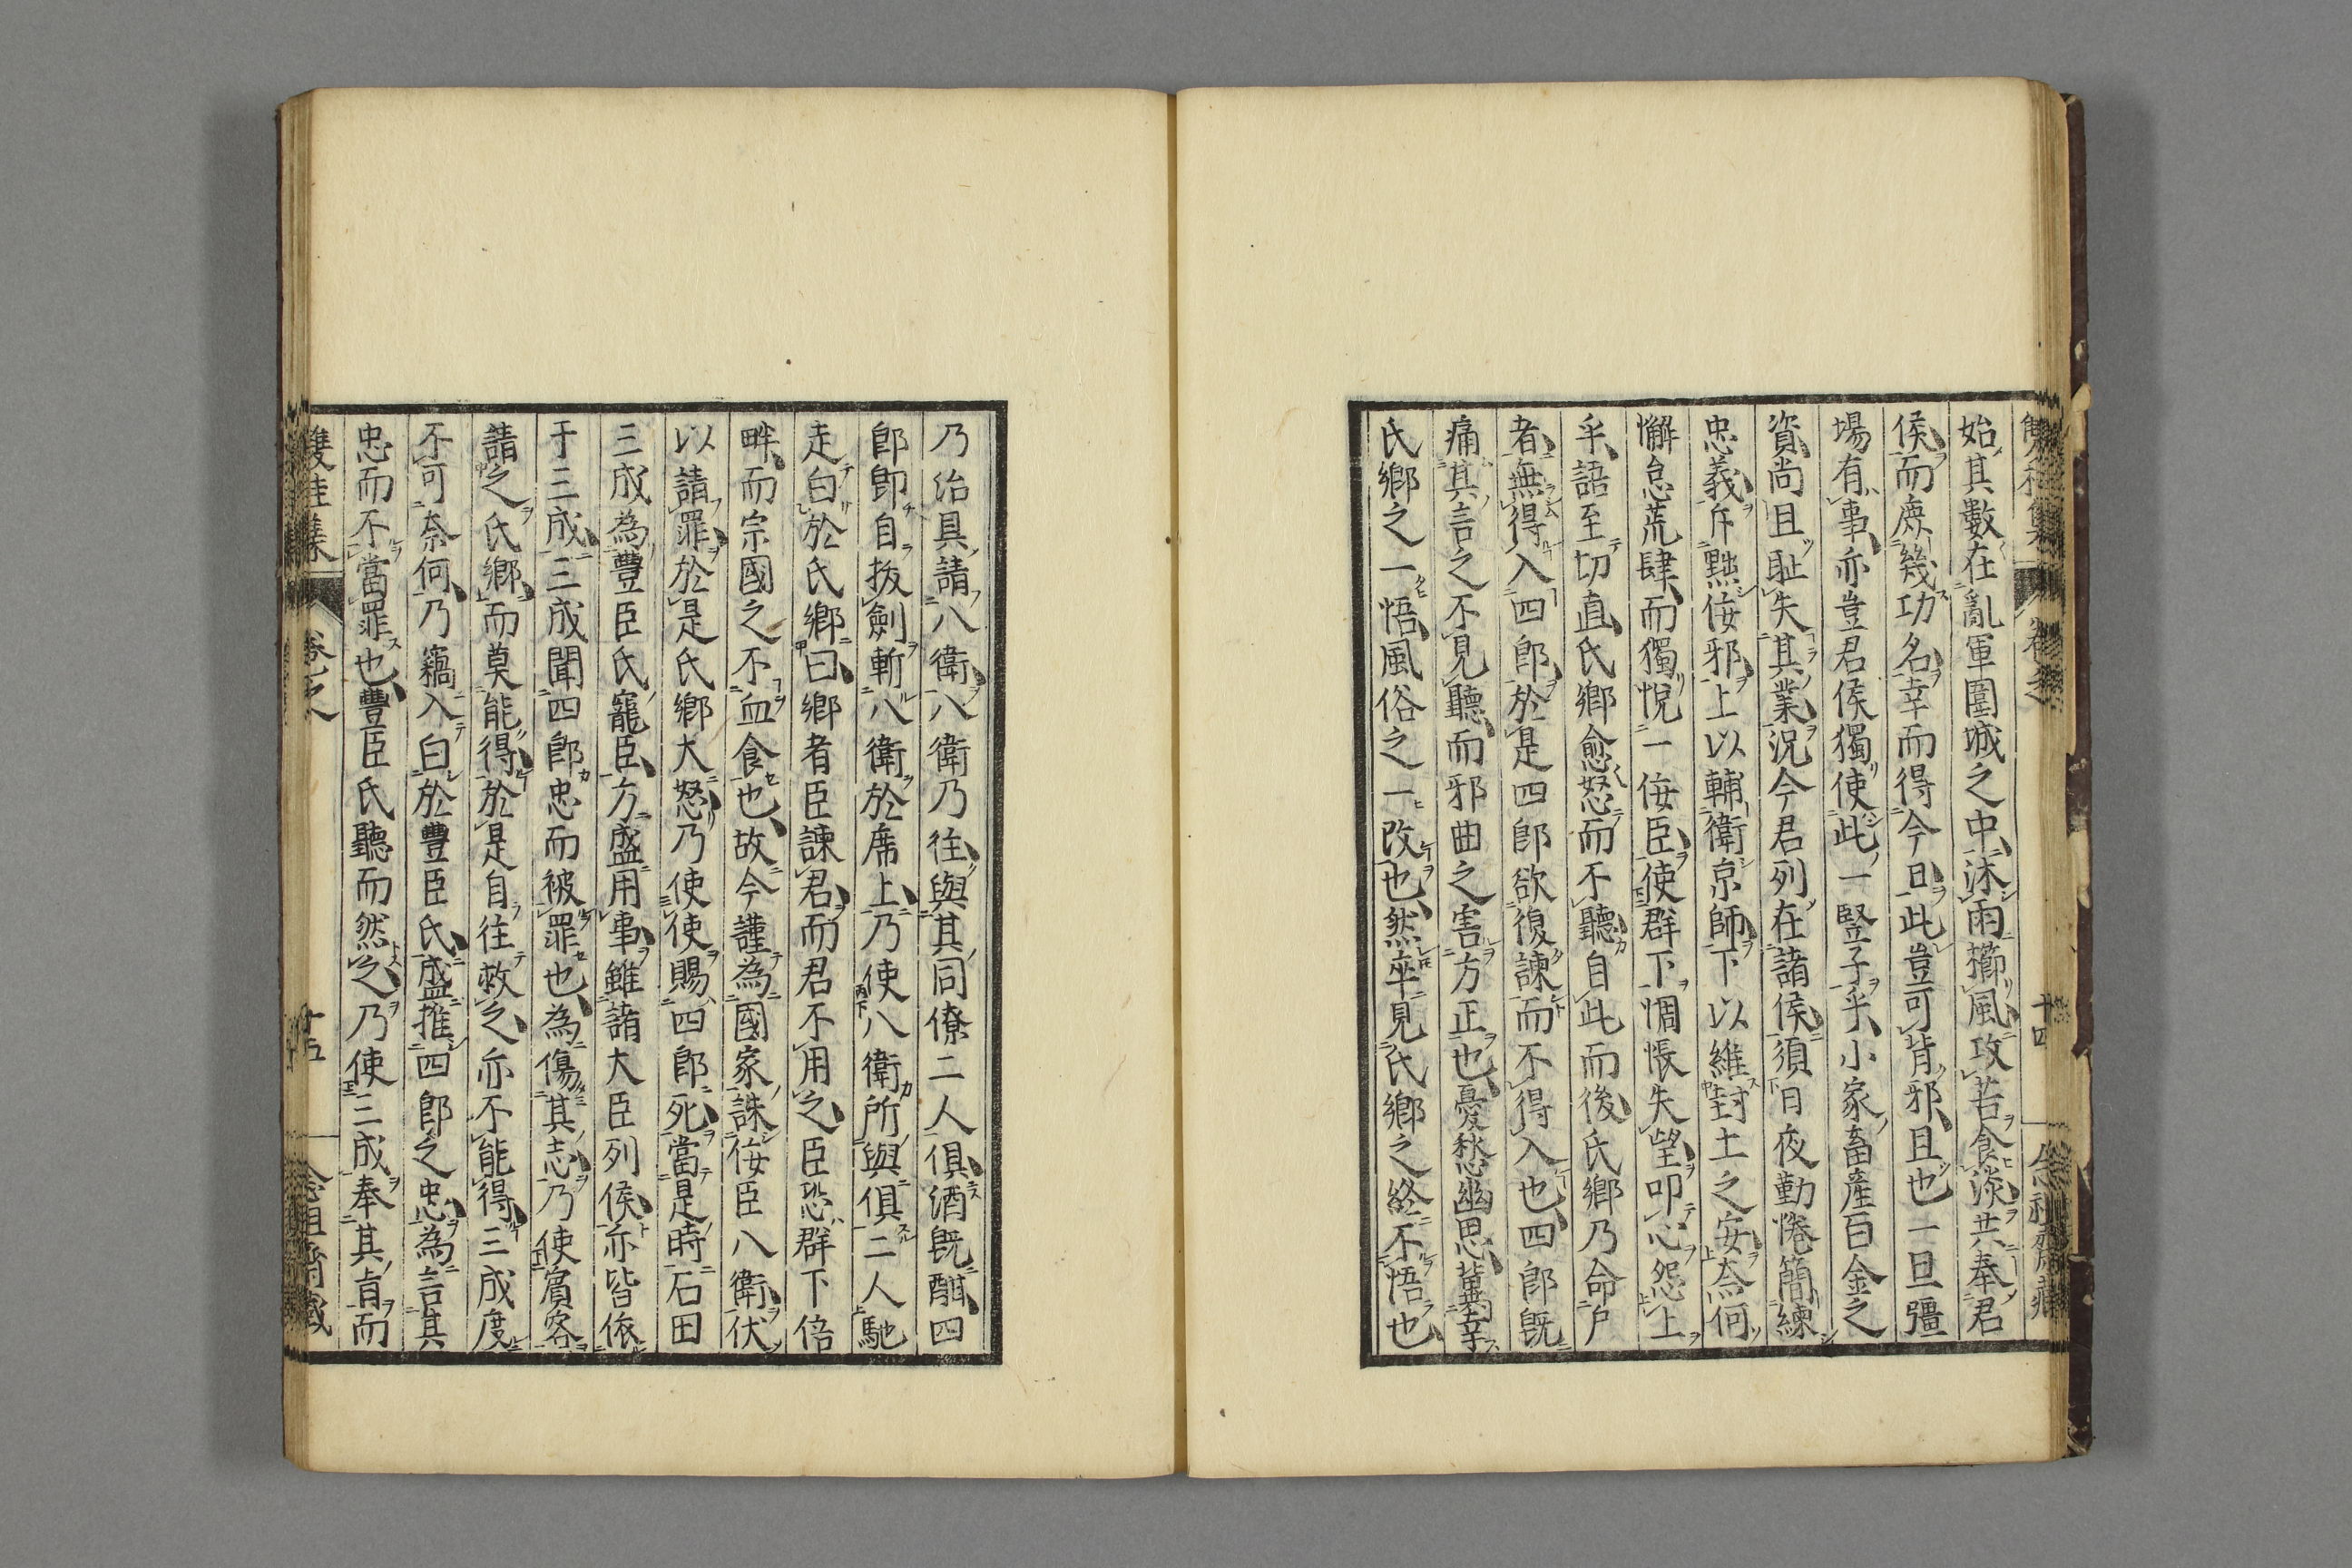 始其數在亂軍圍城之中沐雨櫛風攻苦食淡共奉君
侯而庶幾功名幸而得今日此豈可背邪且也一旦彊
場有事亦豈君侯獨使此一豎子乎小家畜產百金之
資尚且耻失其業況今君列在諸侯須日夜勤惓簡練
忠義斥黜侫邪上以輔衛京師下以維封土之安奈何
懈怠荒肆而獨悅一侫臣使群下惆悵失望叩心怨上
乎語至切直氏鄉愈怒而不聽自此而後氏鄉乃命戶
者無得入四郎於是四郎欲復諫而不得入也四郎既
痛其言之不見聽而邪曲之害方正也憂愁幽思冀幸
氏鄉之一悟風俗之一改也然卒見氏鄉之終不悟也
乃治具請八衛八衛乃往與其同僚二人俱酒既酣四
郎即自拔劍斬八衛於席上乃使八衛所與俱二人馳
走白於氏鄉曰鄉者臣諫君而君不用之臣恐群下倍
畔而宗國之不血食也故今謹為國家誅侫臣八衛伏
以請罪於是氏鄉大怒乃使使賜四郎死當是時石田
三成為豐臣氏寵臣方盛用事雖諸大臣列侯亦皆依
于三成三成聞四郎忠而被罪也為傷其志乃使賓客
請之氏鄉而莫能得於是自往救之亦不能得三成度
不可奈何乃竊入白於豐臣氏盛推四郎之忠為言其
忠而不當罪也豐臣氏聽而然之乃使三成奉其旨而
雙桂集 卷之 十五